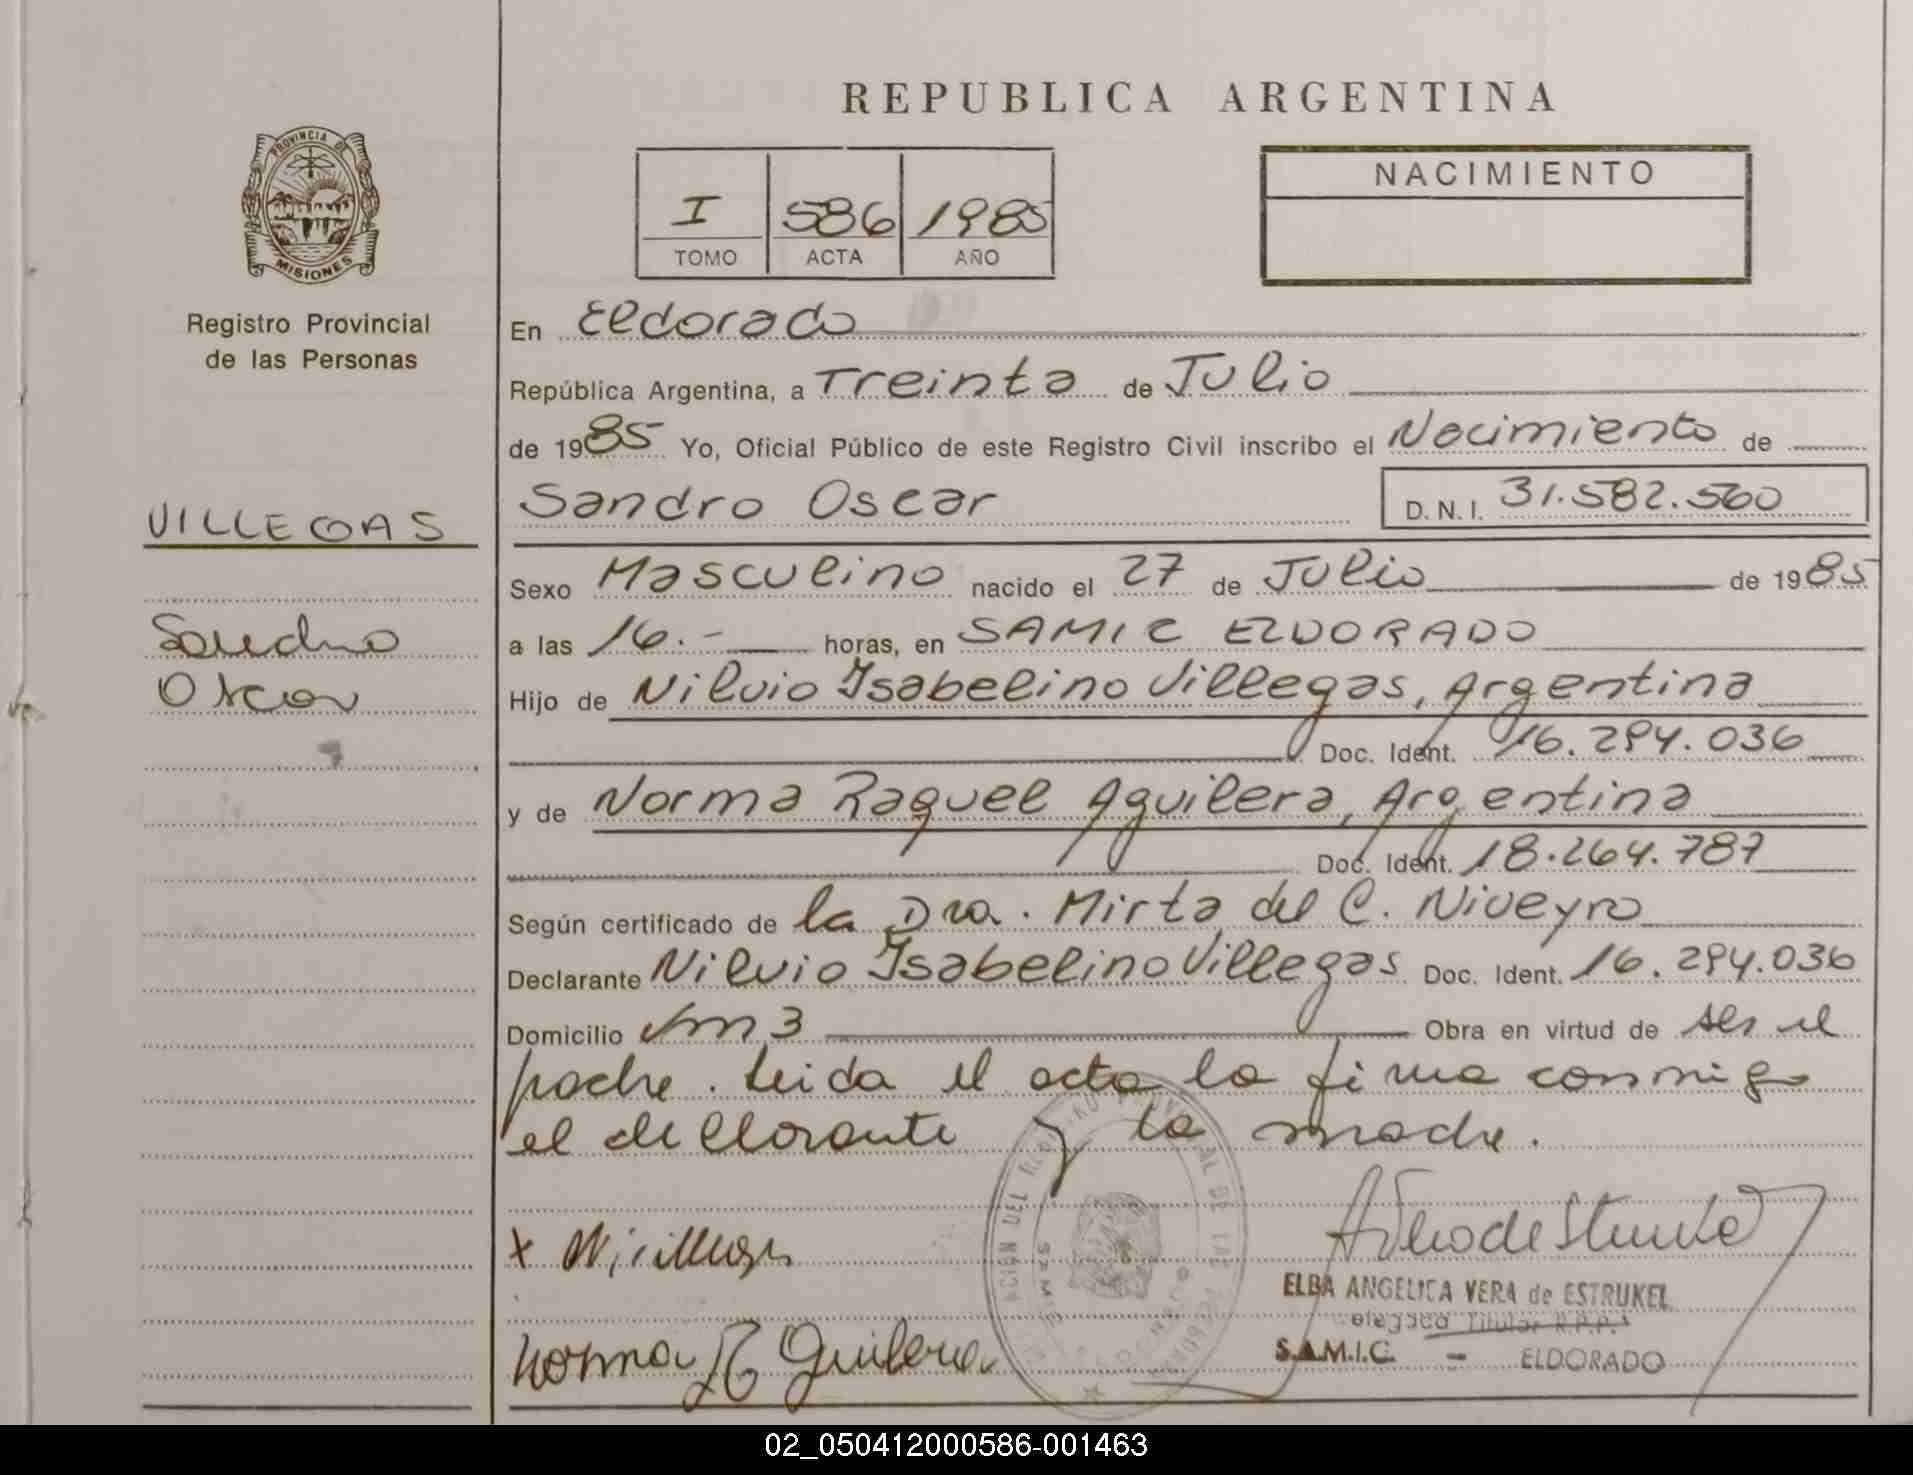 REPUBLICA ARGENTINA
PROVINCIA DE
MISIONES
Registro Provincial
de las Personas
VILLEGAS
Sandro
Oscar
I 586 1985
TOMO ACTA AÑO
NACIMIENTO
En Eldorado
República Argentina, a Treinta de Julio
de 1985 Yo, Oficial Público de este Registro Civil inscribo el Nacimiento de
Sandro Oscar D.N.I. 31.582.560
Sexo Masculino nacido el 27 de Julio de 1985
a las 16.- horas, en SAMIC ELDORADO
Hijo de Nilvio Isabelino Villegas, Argentina
Doc. Ident. 16.294.036
y de Norma Raquel Aguilera, Argentina
Doc. Ident. 18.264.787
Según certificado de la Dra. Mirta del C. Niveyro
Declarante Nilvio Isabelino Villegas Doc. Ident. 16.294.036
Domicilio Km 3 Obra en virtud de ser el
padre. Leida el acta la firma conmigo
el declarante y la madre.
ELBA ANGELICA VERA de ESTRUKEL
Titular R.P.P.
S.A.M.I.C. - ELDORADO
Norma R Aguilera
02_050412000586-001463